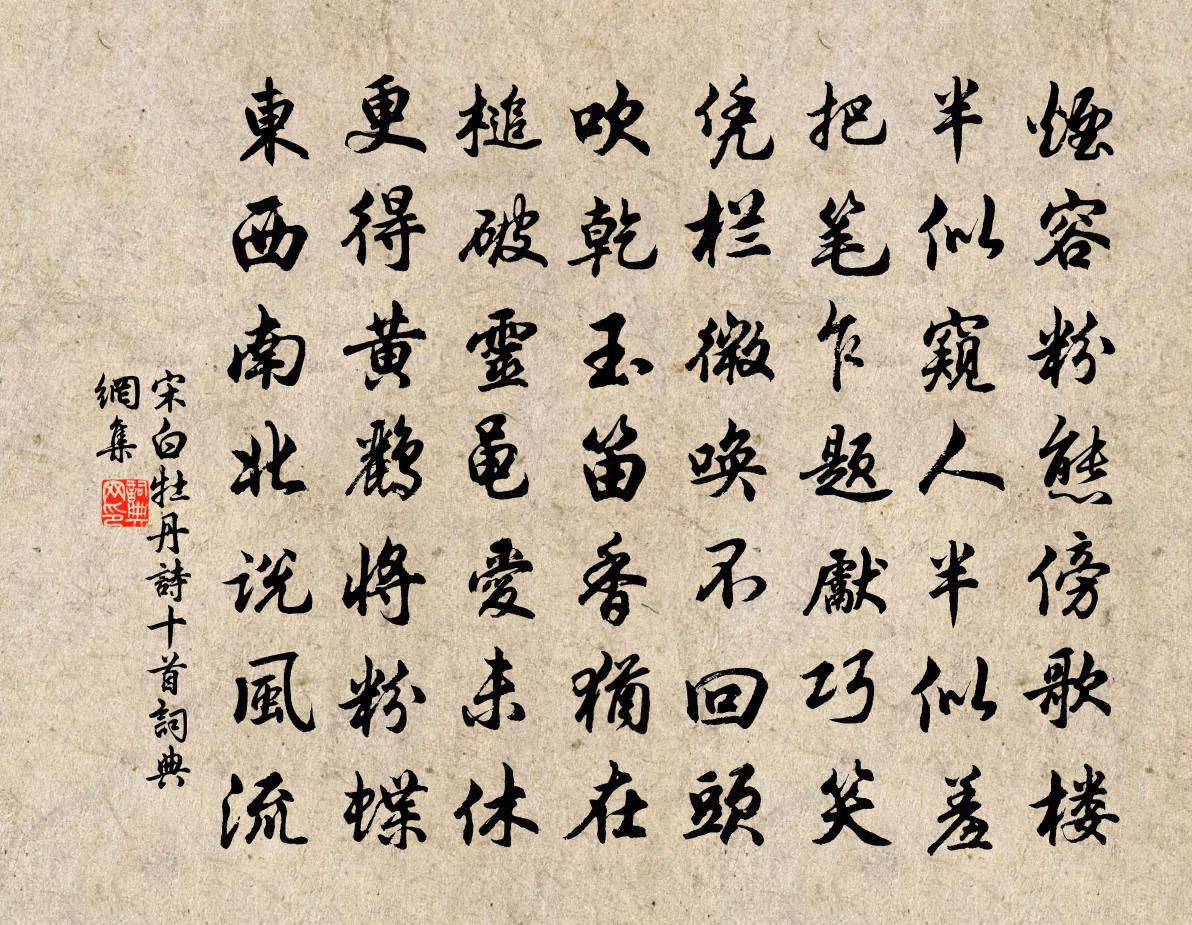 煙容粉態傍歌楼
半似窺人半似羞
把笔乍題獻巧笑
凭栏微喚不回頭
吹乾玉笛香猶在
槌破靈黽愛未休
更得黃鸝將粉蝶
東西南北說風流
宋白牡丹詩十首詞典
網集
詞典
网印